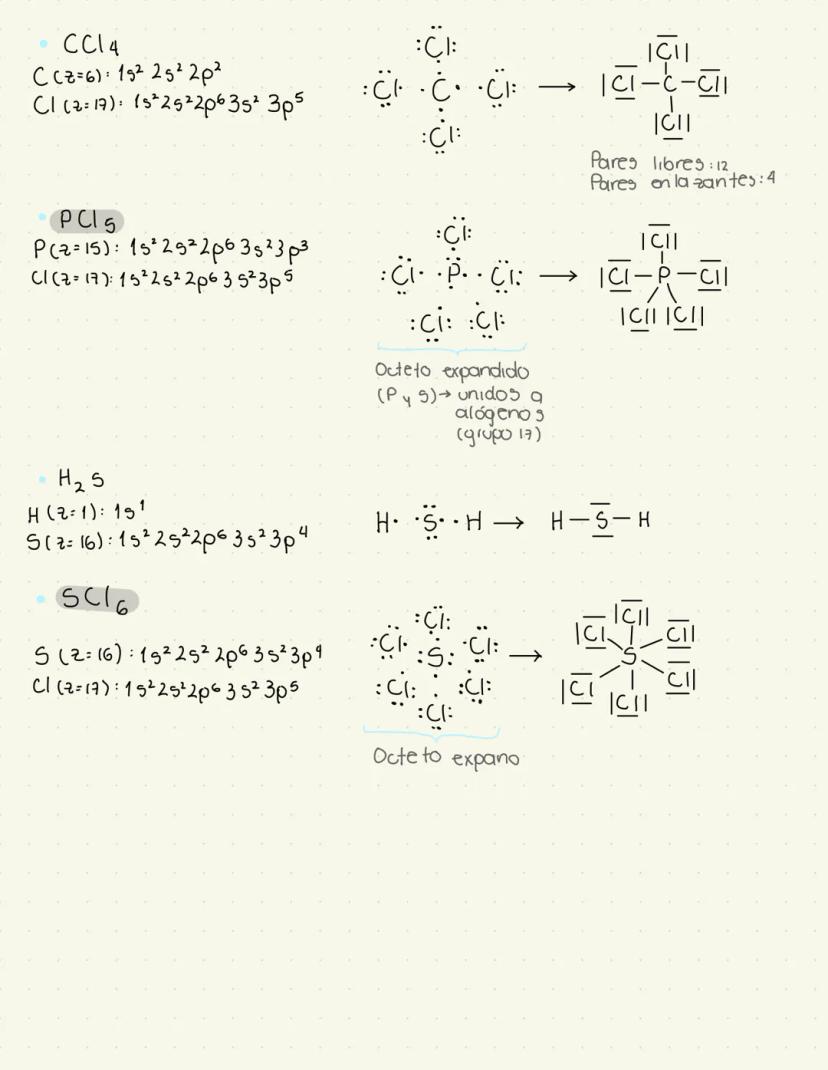 • CCl₄
C (z=6): 1s² 2s² 2p²
Cl (z=17): 1s² 2s² 2p⁶ 3s² 3p⁵
:Cl:
:Cl· ·C· ·Cl:
:Cl:
→
|Cl|
|Cl–C–Cl|
|Cl|
Pares libres: 12
Pares enlazantes: 4
• PCl₅
P (z=15): 1s² 2s² 2p⁶ 3s² 3p³
Cl (z=17): 1s² 2s² 2p⁶ 3s² 3p⁵
:Cl:
:Cl· ·P· ·Cl:
:Cl: :Cl:
→
|Cl|
|Cl–P–Cl|
|Cl| |Cl|
Octeto expandido
(P y S)→ unidos a
alógenos
(grupo 17)
• H₂S
H (z=1): 1s¹
S (z=16): 1s² 2s² 2p⁶ 3s² 3p⁴
H· ·S· ·H → H–S–H
• SCl₆
S (z=16): 1s² 2s² 2p⁶ 3s² 3p⁴
Cl (z=17): 1s² 2s² 2p⁶ 3s² 3p⁵
:Cl:
:Cl· :S: ·Cl:
:Cl: :Cl:
:Cl:
→
|Cl|
|Cl Cl|
S
|Cl Cl|
|Cl|
Octeto expano